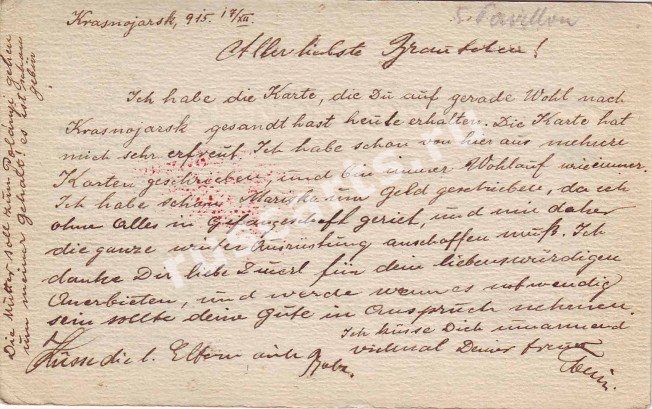 Krasnojarsk, 915. 17/XII.
Allerliebste
Ich habe die Karte, die Du auf gerade Wohl nach
Krasnojarsk gesandt hast heute erhalten. Die Karte hat
mich sehr erfreut. Ich habe schon von hier aus mehrere
Karten geschrieben, und bin immer Wohlauf wie immer.
Ich habe schon Mariska um Geld geschrieben, da ich
ohne Alles in geriet, und mir daher
die ganze winter Ausrüstung anschaffen muß. Ich
danke Dir liebe für dein liebenswürdigen
Anerbieten, und werde wenn es notwendig
sein sollte deine Güte in Anspruch nehmen.
Ich küsse Dich umarmend
vielmal Deiner treuer
Küsse die l. Eltern
Die Mutter soll zum gehen
um meiner Gehalt! es ist